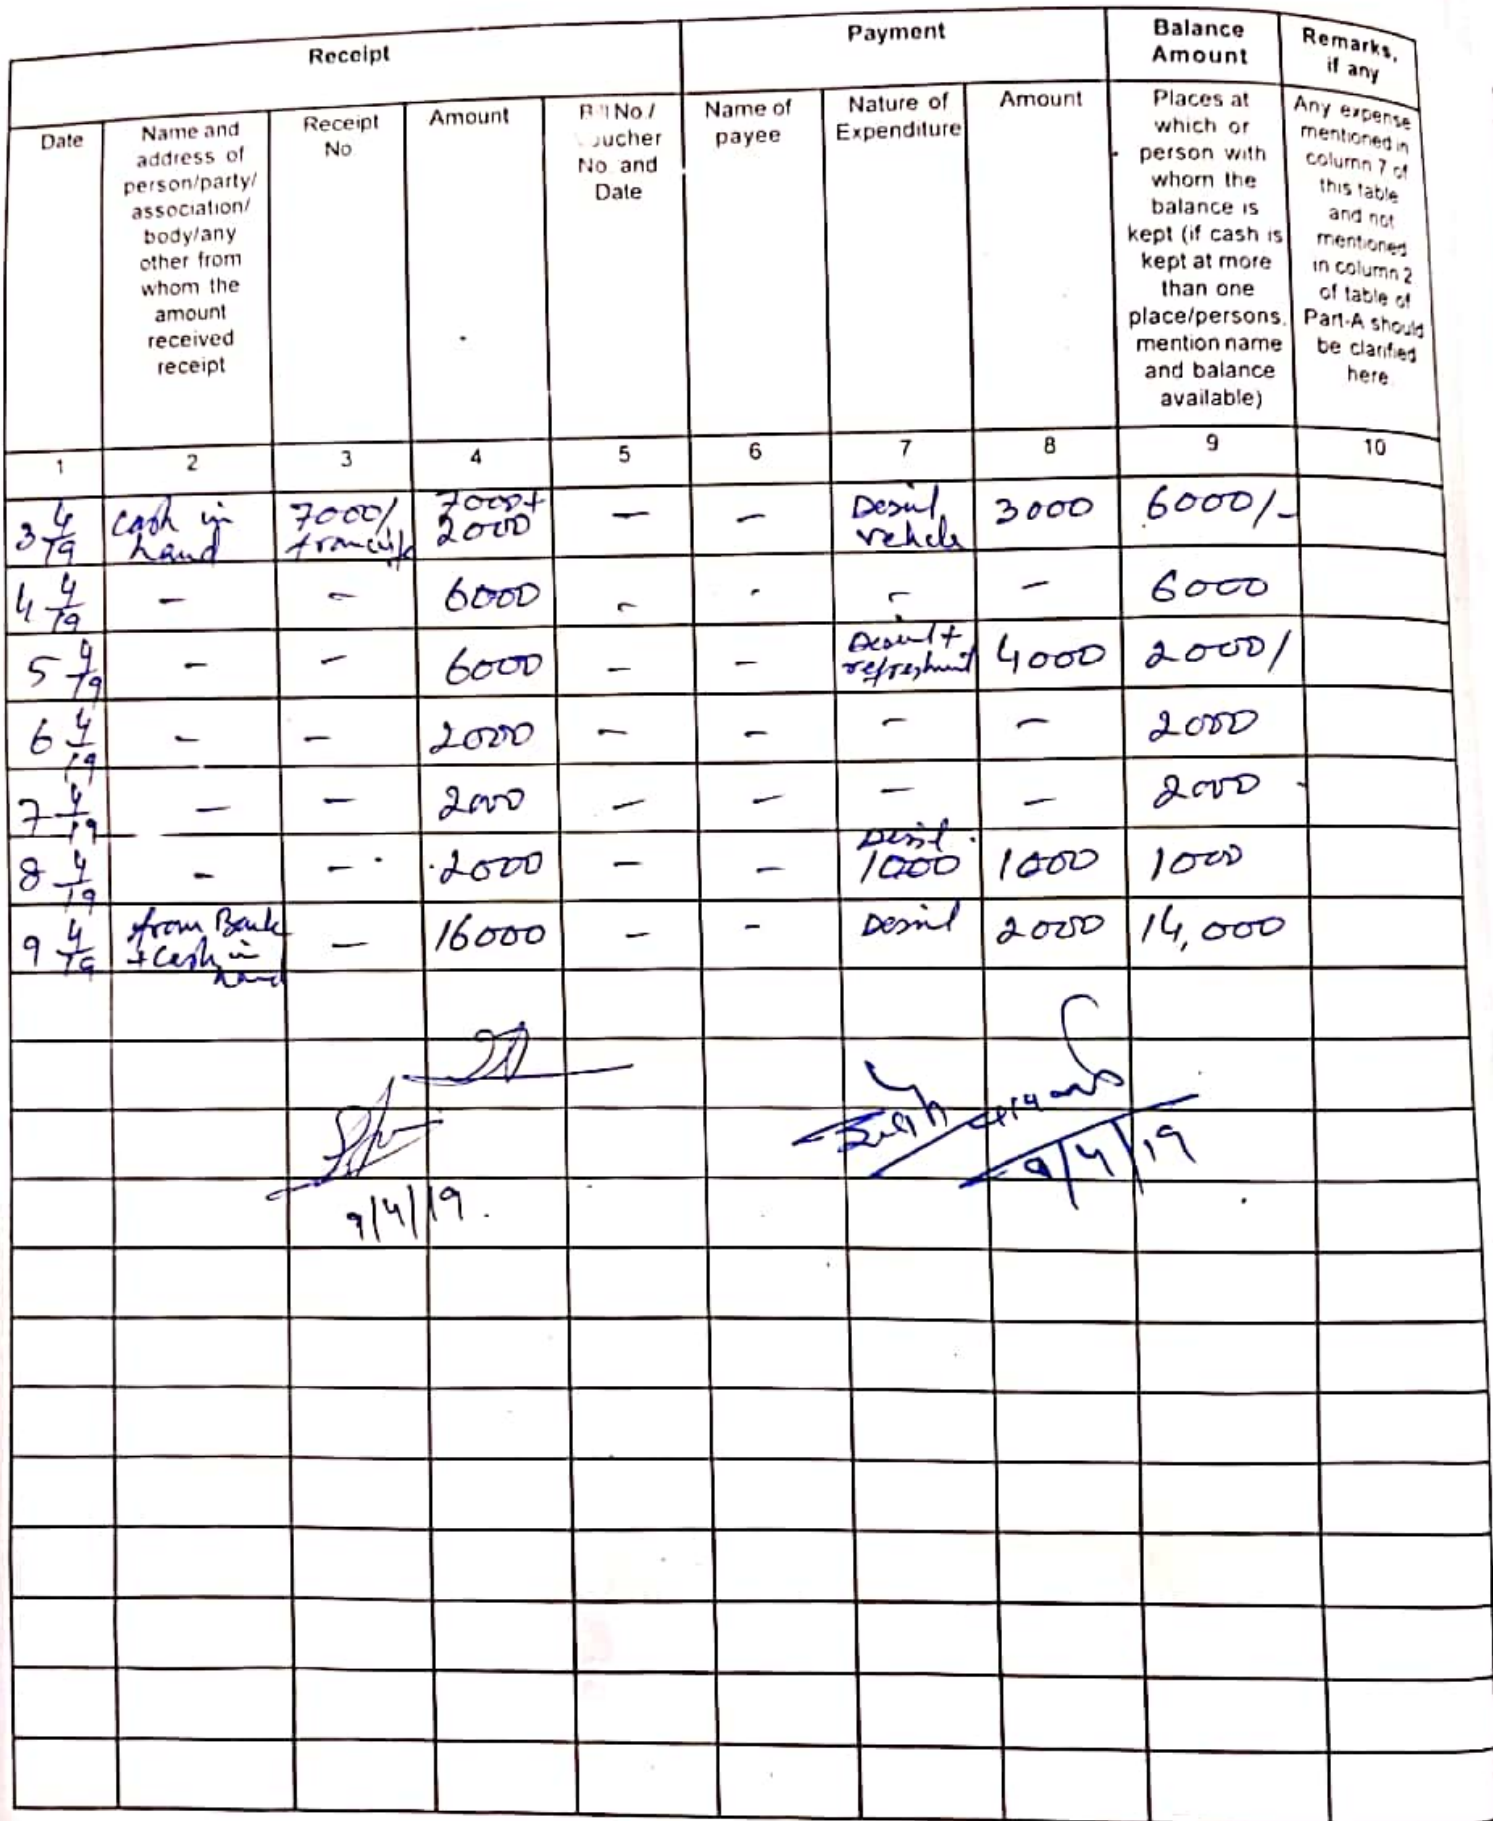 Receipt
Payment
Balance
Amount
Remarks,
if any
Date
Name and
address of
person/party/
association/
body/any
other from
whom the
amount
received
receipt
Receipt
No.
Amount
Bill No./
Voucher
No. and
Date
Name of
payee
Nature of
Expenditure
Amount
Places at
which or
person with
whom the
balance is
kept (if cash is
kept at more
than one
place/persons,
mention name
and balance
available)
Any expense
mentioned in
column 7 of
this table
and not
mentioned
in column 2
of table of
Part-A should
be clarified
here.
1 2 3 4 5 6 7 8 9 10
3 4/19 cash in hand 7000/ 7000+ 2000 — — vehicle 3000 6000/-
4 4/19 - - 6000 - - - - 6000
5 4/19 - - 6000 - - 4000 2000/
6 4/19 - - 2000 - - - - 2000
7 4/19 - - 2000 - - - - 2000
8 4/19 - - 2000 - - 1000 1000 1000
9 4/19 from Bank + Cash in hand - 16000 - - 2000 14,000
9/4/19
9/4/19.